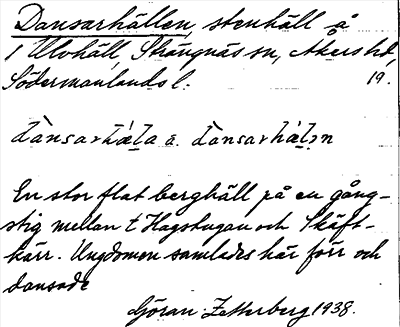 Dansarhällen, stenhäll å
1 Ulvhäll, Strängnäs sn, Åkers hd,
Södermanlands l. 19.
dànsarhä́la a. dànsarhä́lən
En stor flat berghäll på en gång-
stig mellan t Hagstugan och Skäft-
kärr. Ungdomen samlades här förr och
dansade
Göran Zetterberg 1938.